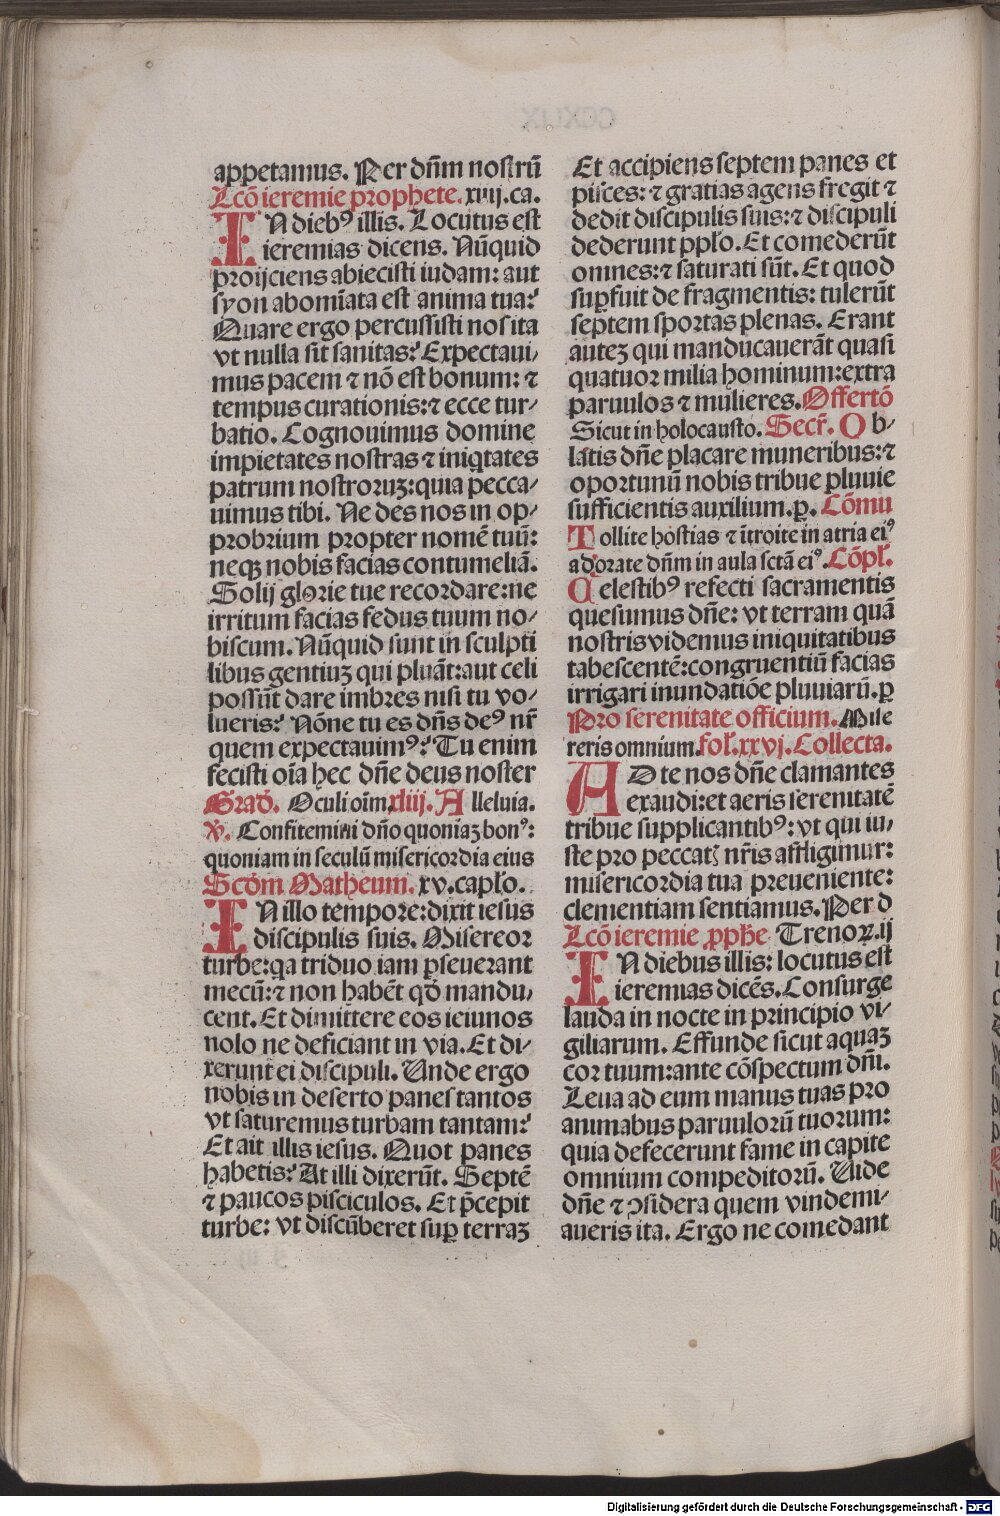 appetamus. Per dn̄m nostrū
Lcō ieremie prophete. xiiij.ca.
IN diebꝰ illis. Locutus est
ieremias dicens. Nūquid
proijciens abiecisti iudam: aut
syon abomīata est anima tua?
Quare ergo percussisti nos ita
vt nulla sit sanitas? Expectaui/
mus pacem ⁊ nō est bonum: ⁊
tempus curationis: ⁊ ecce tur/
batio. Cognouimus domine
impietates nostras ⁊ iniqtates
patrum nostroruꝫ: quia pecca/
uimus tibi. Ne des nos in op/
probrium propter nomē tuū:
neqꝫ nobis facias contumeliā.
Solij glorie tue recordare: ne
irritum facias fedus tuum no/
biscum. Nūquid sunt in sculpti
libus gentiuꝫ qui pluāt: aut celi
possūt dare imbres nisi tu vo/
lueris? Nōne tu es dn̄s deꝰ nr̄
quem expectauimꝰ? Tu enim
fecisti oīa hec dn̄e deus noster
Grad̄. Oculi oīm xliij. Alleluia.
℣. Confitemini dn̄o quoniaꝫ bonꝰ:
quoniam in seculū misericordia eius
Scd̄m Matheum. xv. capl̄o.
IN illo tempore: dixit iesus
discipulis suis. Misereor
turbe: qa triduo iam ꝑseuerant
mecū: ⁊ non habēt qd̄ mandu/
cent. Et dimittere eos ieiunos
nolo ne deficiant in via. Et di/
xerunt ei discipuli. Unde ergo
nobis in deserto panes tantos
vt saturemus turbam tantam?
Et ait illis iesus. Quot panes
habetis? At illi dixerūt. Septē
⁊ paucos pisciculos. Et p̄cepit
turbe: vt discūberet suꝑ terraꝫ
Et accipiens septem panes et
pisces: ⁊ gratias agens fregit ⁊
dedit discipulis suis: ⁊ discipuli
dederunt ppl̄o. Et comederūt
omnes: ⁊ saturati sūt. Et quod
suꝑfuit de fragmentis: tulerūt
septem sportas plenas. Erant
auteꝫ qui manducauerāt quasi
quatuor milia hominum: extra
paruulos ⁊ mulieres. Offertō
Sicut in holocausto. Secr̄. Ob/
latis dn̄e placare muneribus: ⁊
oportunū nobis tribue pluuie
sufficientis auxilium. ꝑ. Cōmu
Tollite hostias ⁊ ītroite in atria eiꝰ
adorate dn̄m in aula sctā eiꝰ. Cōpl̄.
Celestibꝰ refecti sacramentis
quesumus dn̄e: vt terram quā
nostris videmus iniquitatibus
tabescentē: congruentiū facias
irrigari inundatiōe pluuiarū. ꝑ
Pro serenitate officium. Mise
reris omnium. fol̄. xxvj. Collecta.
AD te nos dn̄e clamantes
exaudi: et aeris serenitatē
tribue supplicantibꝰ: vt qui iu/
ste pro peccatꝭ nr̄is affligimur:
misericordia tua preueniente:
clementiam sentiamus. Per d
Lcō ieremie ꝓpħe Trenoꝝ. ij
IN diebus illis: locutus est
ieremias dicēs. Consurge
lauda in nocte in principio vi/
giliarum. Effunde sicut aquaꝫ
cor tuum: ante cōspectum dn̄i.
Leua ad eum manus tuas pro
animabus paruulorū tuorum:
quia defecerunt fame in capite
omnium compeditorū. Uide
dn̄e ⁊ ꝯsidera quem vindemi/
aueris ita. Ergo ne comedant
Digitalisierung gefördert durch die Deutsche Forschungsgemeinschaft - DFG